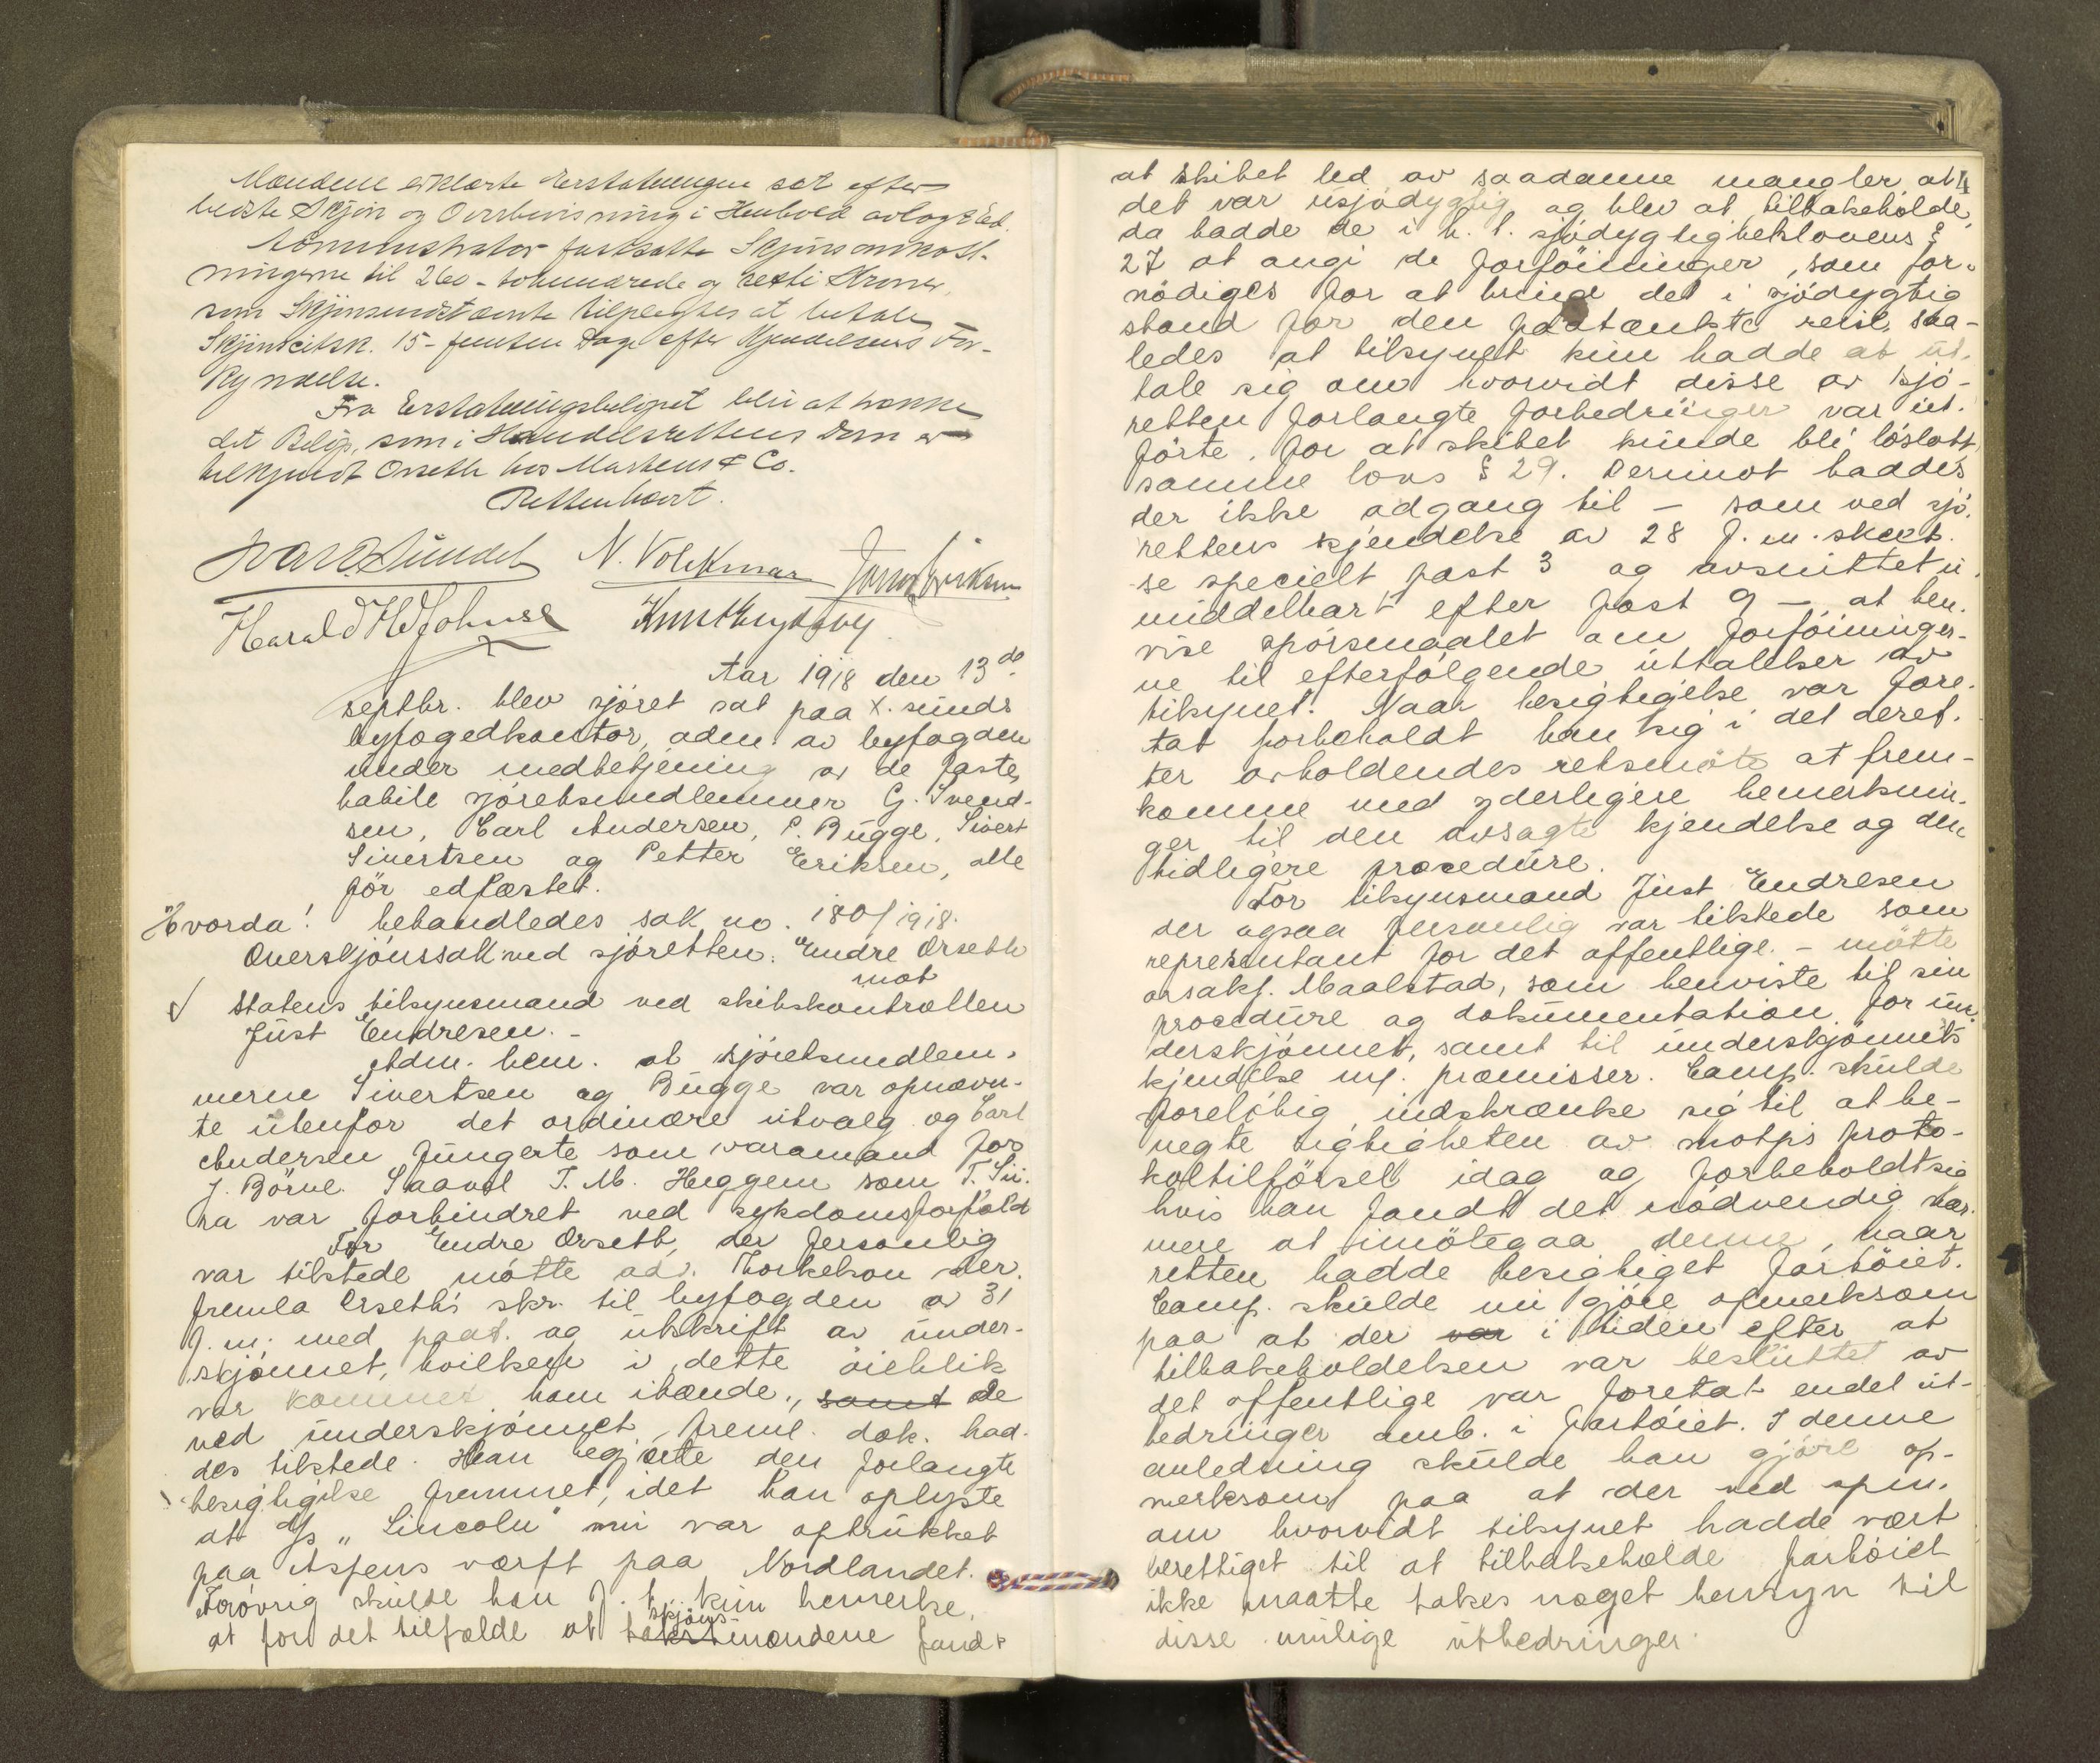 Mændene erklærte Erstatningen sat efter
bedste Skjøn og Overbevisning i Henhold avlagt Ed.
Administrator fastsatte Skjønsomkost-
ningerne til 260 - tohundrede og sexti Kroner,
som Skjønsindstævnte tilpligtes at betale
Skjønscitsk. 15 - femten Dage efter Kjendelsens For-
kyndelse.
Fra Erstatningsbeløpet blir at trække
det Beløp, som i Handelsrettens Dom er
tilkjendt Orseth hos Martens & Co.
Retten hævt.
Ivar Sundet N. Volckmar Jonas Eriksen
Harald H Johnsen
Aar 1918 den 13de
septbr. blev sjöret sat paa X.sunds
byfogedkontor, adm. av byfogden
under medbetjening av de faste,
habile sjöretsmedlemmer G. Svend-
sen, Carl Andersen, P. Bugge, Sivert
Sivertsen og Petter Eriksen, alle
för edfæstet.
Hvorda! behandledes sak no. 180/1918.
Overskjönssak ved sjöretten: Endre Orseth
mot
Statens tilsynsmand ved skibskontrollen
Just Endresen. -
Adm. bem. at sjöretsmedlem-
merne Sivertsen og Bugge var opnævn-
te utenfor det ordinære utvalg og Carl
Andersen fungerte som varamand for
J. Börve. Saavel T. M. Heggem som T. Sii-
ra var forhindret ved sykdomsforfald
For Endre Orseth, der personlig
var tilstede mötte adv. Thorkelson der
fremla Orseths skr. til byfogden av 31
f. m. med paat. og utskrift av under-
skjönnet, hvilken i dette öieblik
var kommet ham ihænde, samt de
ved underskjönnet freml. dok. had-
des tilstede. Han begjærte den forlangte
besigtigelse fremmet, idet han oplyste
at d/s "Lincoln" nu var optrukket
paa Aspens værft paa Nordlandet.
Forövrig skulde han f. t. kun bemerke,
at for det tilfælde at takstmændene fandt
skjöns-
4
at skibet led av saadanne mangler, at
det var usjödygtig og blev at tilbakeholde,
da hadde de i h. t. sjödygtighetslovens §
27 at angi de forföininger, som for-
nödiges for at bringe det i sjödygtig
stand for den paatænkte reise, saa-
ledes at tilsynet kun hadde at ut-
tale sig om hvorvidt disse av sjö-
retten forlangte forbedringer var ut-
förte, for at skibet kunde bli löslatt,
samme lovs § 29. Derimot haddes
der ikke adgang til - som ved sjö-
rettens kjendelse av 28 f. m. skeet.
se specielt post 3 og avsnittet u-
middelbart efter post 9 - at hen-
vise spörsmaalet om forföininger-
ne til efterfölgende uttalelser av
tilsynet. Naar besigtigelse var fore-
tat forbeholdt han sig i det deref-
ter avholdendes retsmöte at frem-
komme med yderligere bemerknin-
ger til den avsagte kjendelse og den
tidligere procedure.
For tilsynsmand Just Endresen
der ogsaa personlig var tilstede som
representant for det offentlige - mötte
orsakf. Maalstad, som henviste til sin
procedure og dokumentation for un-
derskjönnet, samt til underskjönnets
kjendelse m. præmisser. Comp. skulde
foreløbig indskrænke sig til at be-
negte rigtigheten av motp's proto-
koltilförsel idag og forbeholdt sig
hvis han fandt det nödvendig nær-
mere at imötegaa denne, naar
retten hadde besigtiget fartöiet.
Comp. skulde nu gjöre opmerksom
paa at der var i tiden efter at
tilbakeholdelsen var besluttet av
det offentlige var foretat endel ut-
bedringer omb. i fartöiet. I denne
anledning skulde han gjöre op-
merksom paa at der ved spm.
om hvorvidt tilsynet hadde vært
berettiget til at tilbakeholde fartöiet
ikke maatte takes noget hensyn til
disse mulige utbedringer.